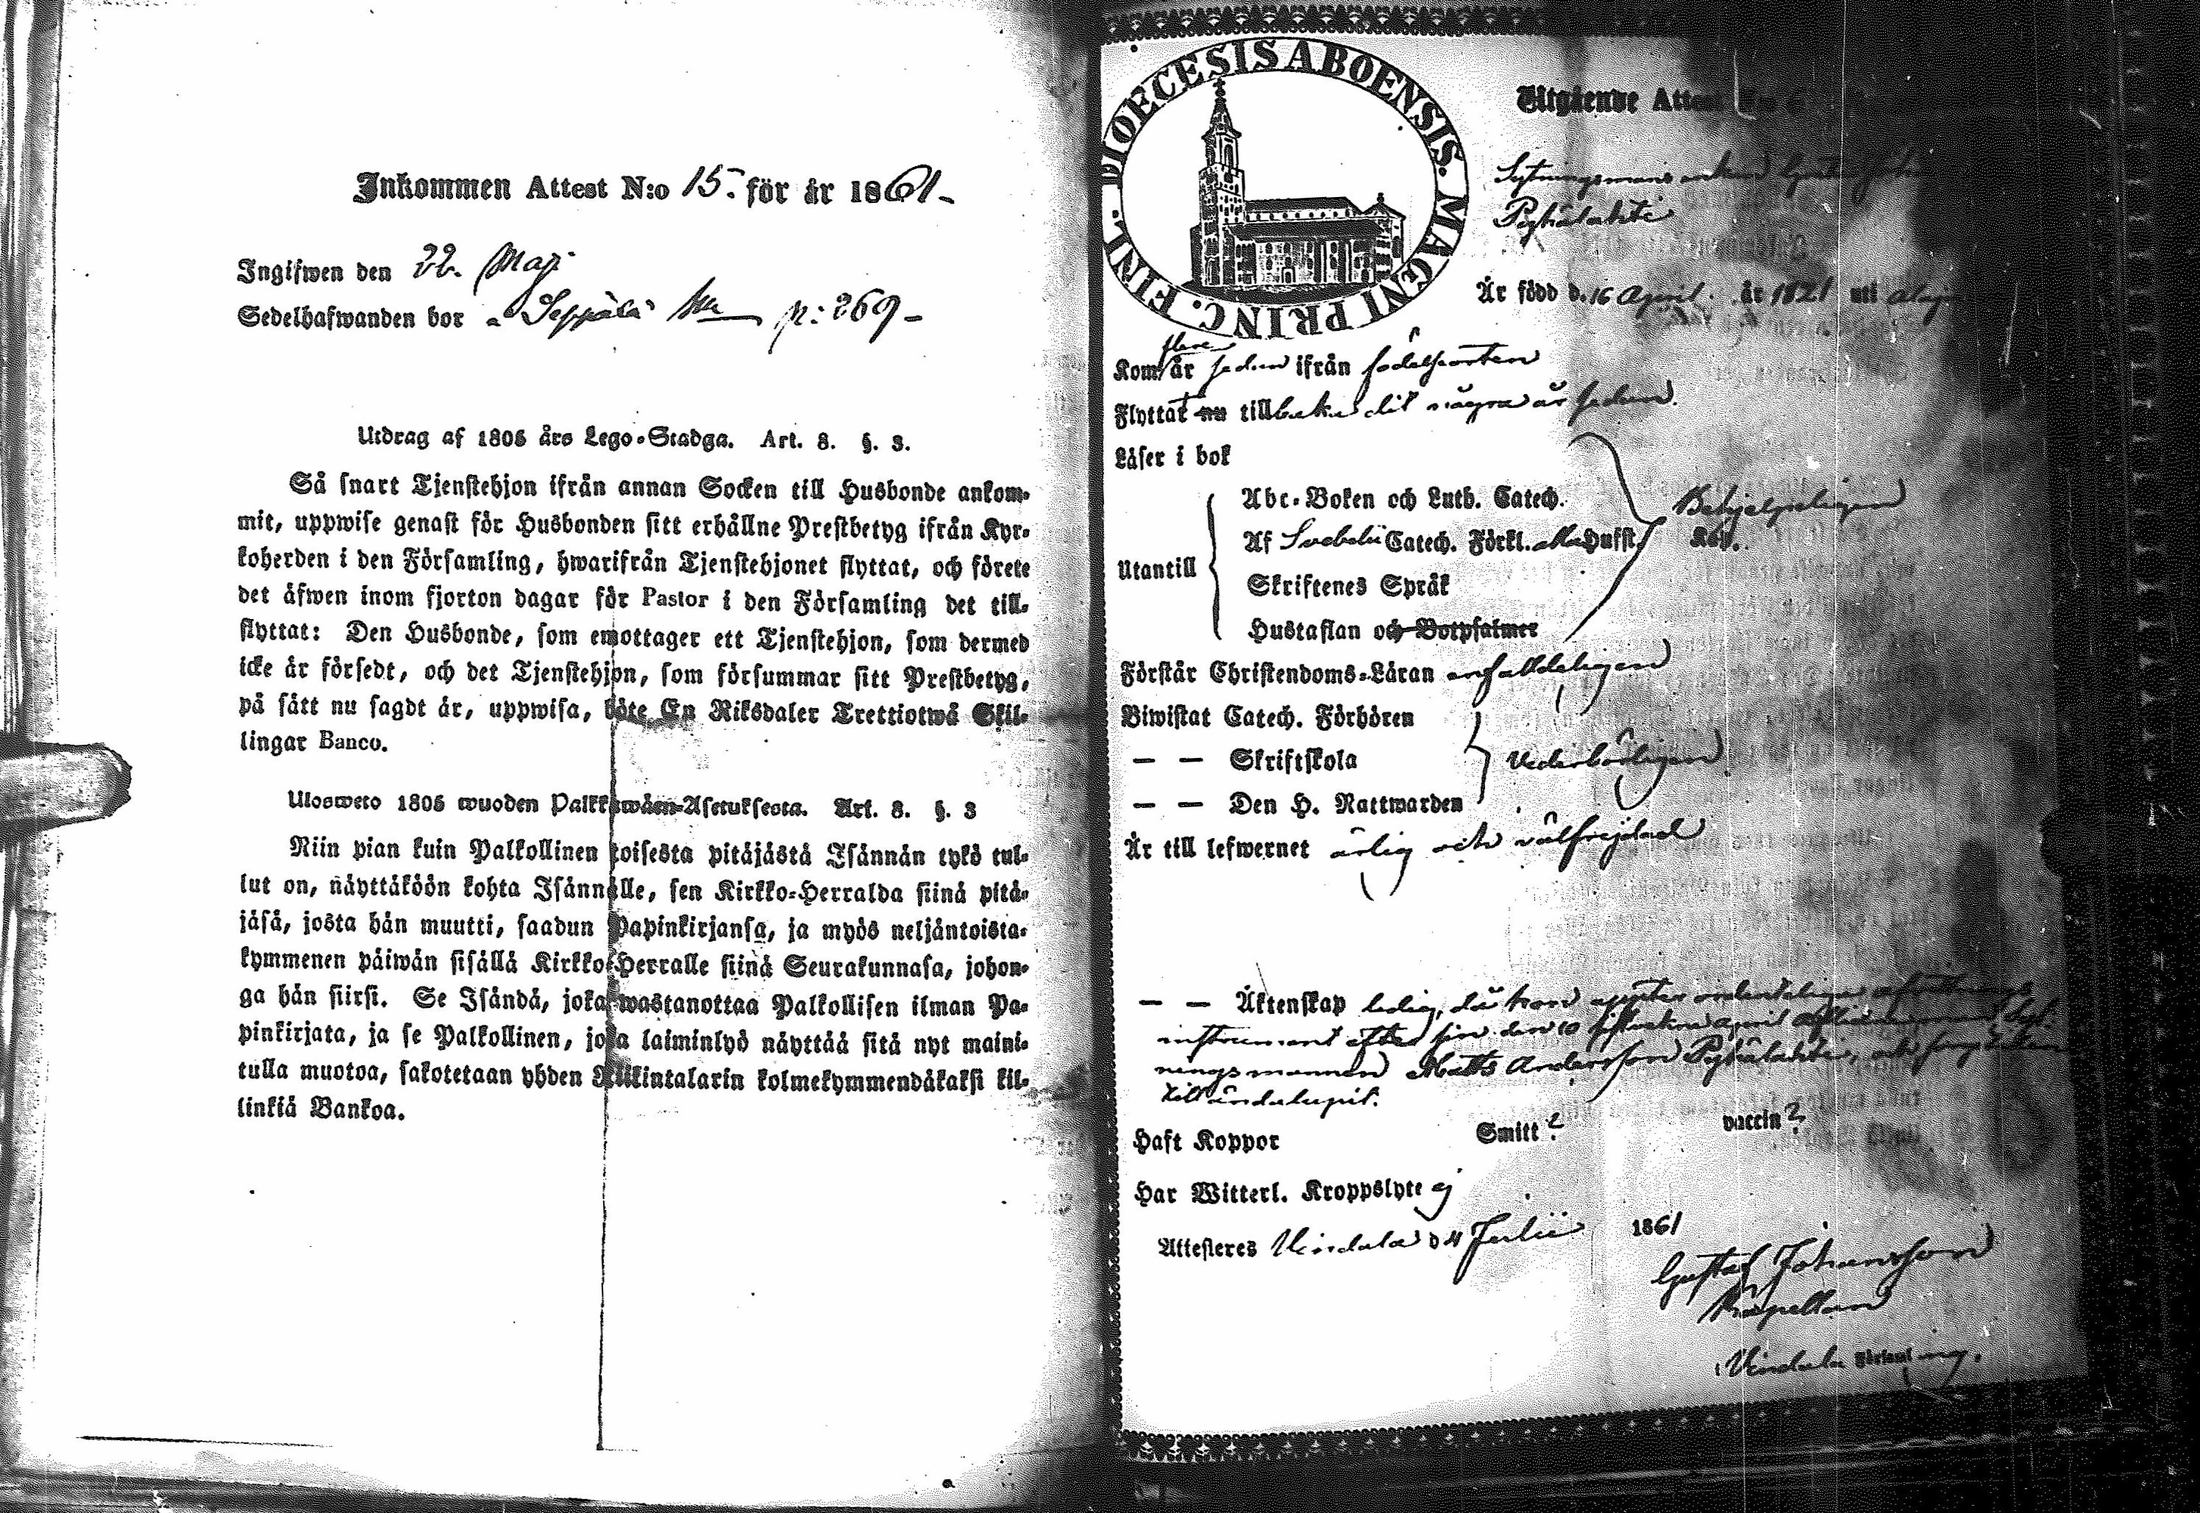 Inkommen Attest N:o 15. för år 1861.
Ingifwen den 22. Maji
Sedelhafwanden bor Seppälä p: 269
Utdrag af 1805 års Lego-Stadga. Art. 8. §. 3.
Så snart Tjenstehjon ifrån annan Socken till Husbonde ankom-
mit, uppwise genast för Husbonden sitt erhållne Prestbetyg ifrån Kyr-
koherden i den Församling, hwarifrån Tjenstehjonet flyttat, och förete
det äfwen inom fjorton dagar för Pastor i den Församling det till-
flyttat: Den Husbonde, som emottager ett Tjenstehjon, som dermed
icke är försedt, och det Tjenstehjon, som försummar sitt Prestbetyg,
på sätt nu sagdt är, uppwisa, böte En Riksdaler Trettiotwå Skil-
lingar Banco.
Ulosweto 1805 wuoden Palkkawäen-Asetuksesta. Art. 8. §. 3
Niin pian kuin Palkollinen toisesta pitäjästä Isännän tykö tul-
lut on, näyttäköön kohta Isännälle, sen Kirkko-Herralda siinä pitä-
jäsä, josta hän muutti, saadun Papinkirjansa, ja myös neljäntoista-
kymmenen päiwän sisällä Kirkko-Herralle siinä Seurakunnasa, johon-
ga hän siirsi. Se Isändä, joka wastanottaa Palkollisen ilman Pa-
pinkirjata, ja se Palkollinen, joka laiminlyö näyttää sitä nyt maini-
tulla muotoa, sakotetaan yhden Riikintalarin kolmekymmendäkaksi kil-
linkiä Bankoa.
DIOECESIS ABOENSIS. MAGNI PRINC. FINL.
Utgående Attest
Sytningsmans enkan
Pyhälahti
Är född d. 16 April år 1821 uti
Kom flere år sedan ifrån födelseorten
Flyttat nu tillbaka dit några år sedan.
Läser i bok
Abc-Boken och Luth. Catech.
Af Svebelii Catech. Förkl. alla Hufst.
Behjelpeligen
Utantill
Skriftenes Språk
Hustaflan och Botpsalmer
Förstår Christendoms-Läran enfaldeligen
Biwistat Catech. Förhören
— — Skriftskola
Vederbörligen
— — Den H. Nattwarden
Är till lefwernet ärlig och välfrejdad
— — Äktenskap ledig, då hon
instrument efter sin den 10 april
ningsmannen Matts Andersson Pyhälahti, och
till ändalykt.
Haft Koppor Smitt? vaccin?
Har Witterl. Kroppslyte ej
Attesteres Vindala d 4 Julii 1861
Gustaf Johansson
Kapellan
Vindala Församling.